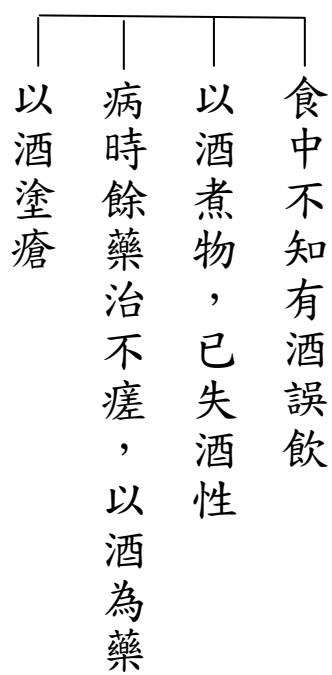 食中不知有酒誤飲
以酒煮物，已失酒性
病時餘藥治不瘥，以酒為藥
以酒塗瘡